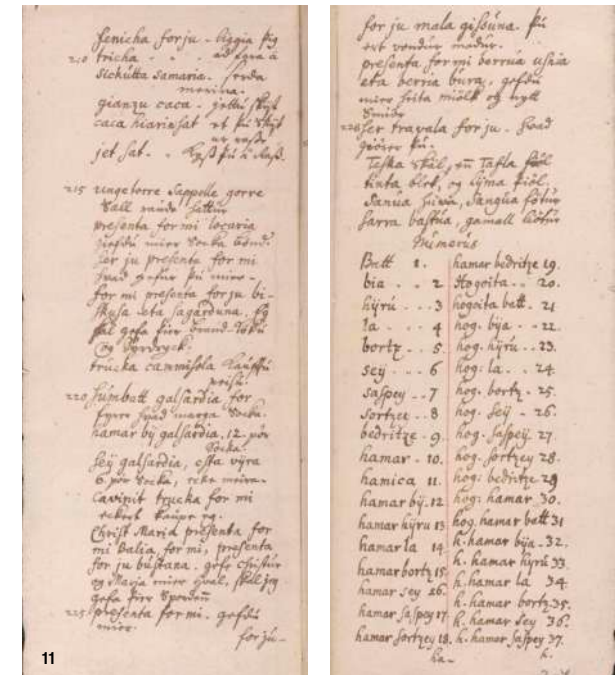 fenicha for ju - liggia þig
210 tricha - - ad
sickutta Samaria.
gianzu caca - jettu skyt
caca hiarinsat et þu skyt
ur rasse
jet sat. - kyss þu á Rass.
215 ungetorre Sappelle gorre
Sall raudr hattur
presenta for mi locaria
giefdu mier socka bönd.
Ser ju presenta for mi
hvad gefur þu mier -
for mi presenta for ju bi-
skusa eta sagarduna. Eg
skal gefa þier braud-köku
og Syrdryck.
trucka cammisola kauptu
peisu.
220 Sumbatt galsardia for
fyrer hvad marga Socka.
hamar by galsardia. 12. pör
Socka.
Sey galsardia, esta vyra
6. pör Socka, ecke meira.
Cavinit trucka for mi
eckert kaupe eg.
Christ Maria presenta for
mi Balia, for mi, presenta
for ju bustana. gefe Christur
og Maria mier hval, skal jeg
gefa þier Spordenn
225 presenta for mi - gefdu
mier.
for ju -
11
for ju mala gissuna. þu
ert vondur madur.
presenta for mi berrua usnia
eta berria bura, gefdu
mier heita miölk og nytt
Smiör
226 Ser travala for ju - hvad
giörer þu.
Taska Skäl, en Tafla fiöl
tinta blek, og lijma
Sanua hnifa, Sangua fötur
Sarra bastua, gamall
Numerus
Batt 1.
bia - - 2
hyrú - - 3
la - - 4
bortz - - 5
sey - - 6
saspey - - 7
sortzee - - 8
bedritze - 9
hamar - 10.
hamica 11.
hamar bij. 12
hamar hyru 13
hamar la 14
hamar bortz 15
hamar sey 16.
hamar saspey 17
hamar sortzey 18.
ha-
hamar bedritze 19.
Hogoita - - 20.
hogoita batt - 21
hog. bija - - 22.
hog. hyrú - - 23.
hog: la - - 24
hog. bortz - 25.
hog. seÿ - 26.
hog: saspeij. 27
hog. sortzey 28.
hog: bedritze 29
hog: hamar 30.
hog. hamar batt 31
h. hamar bija - 32.
h. hamar hyrú 33.
h. hamar la 34.
h. hamar bortz. 35.
h. hamar Sey 36.
h. hamar Saspey 37.
h.